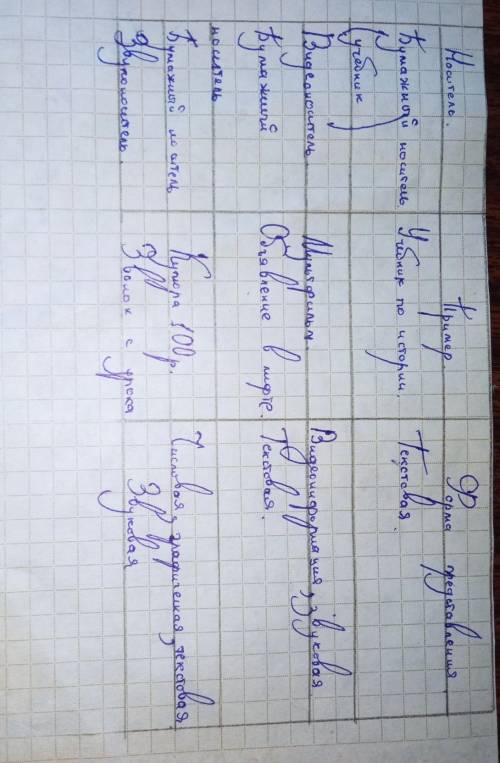 Носитель. Пример. Форма представления
Бумажный носитель. Учебник по истории. Текстовая.
(учебник)
Видеоноситель Мультфильм. Видеоинформация, звуковая
Бумажный Объявление в лифте. Текстовая.
носитель
Бумажный носитель Купюра 100 р. Числовая, графическая, текстовая
Звуконоситель. Звонок с урока Звуковая